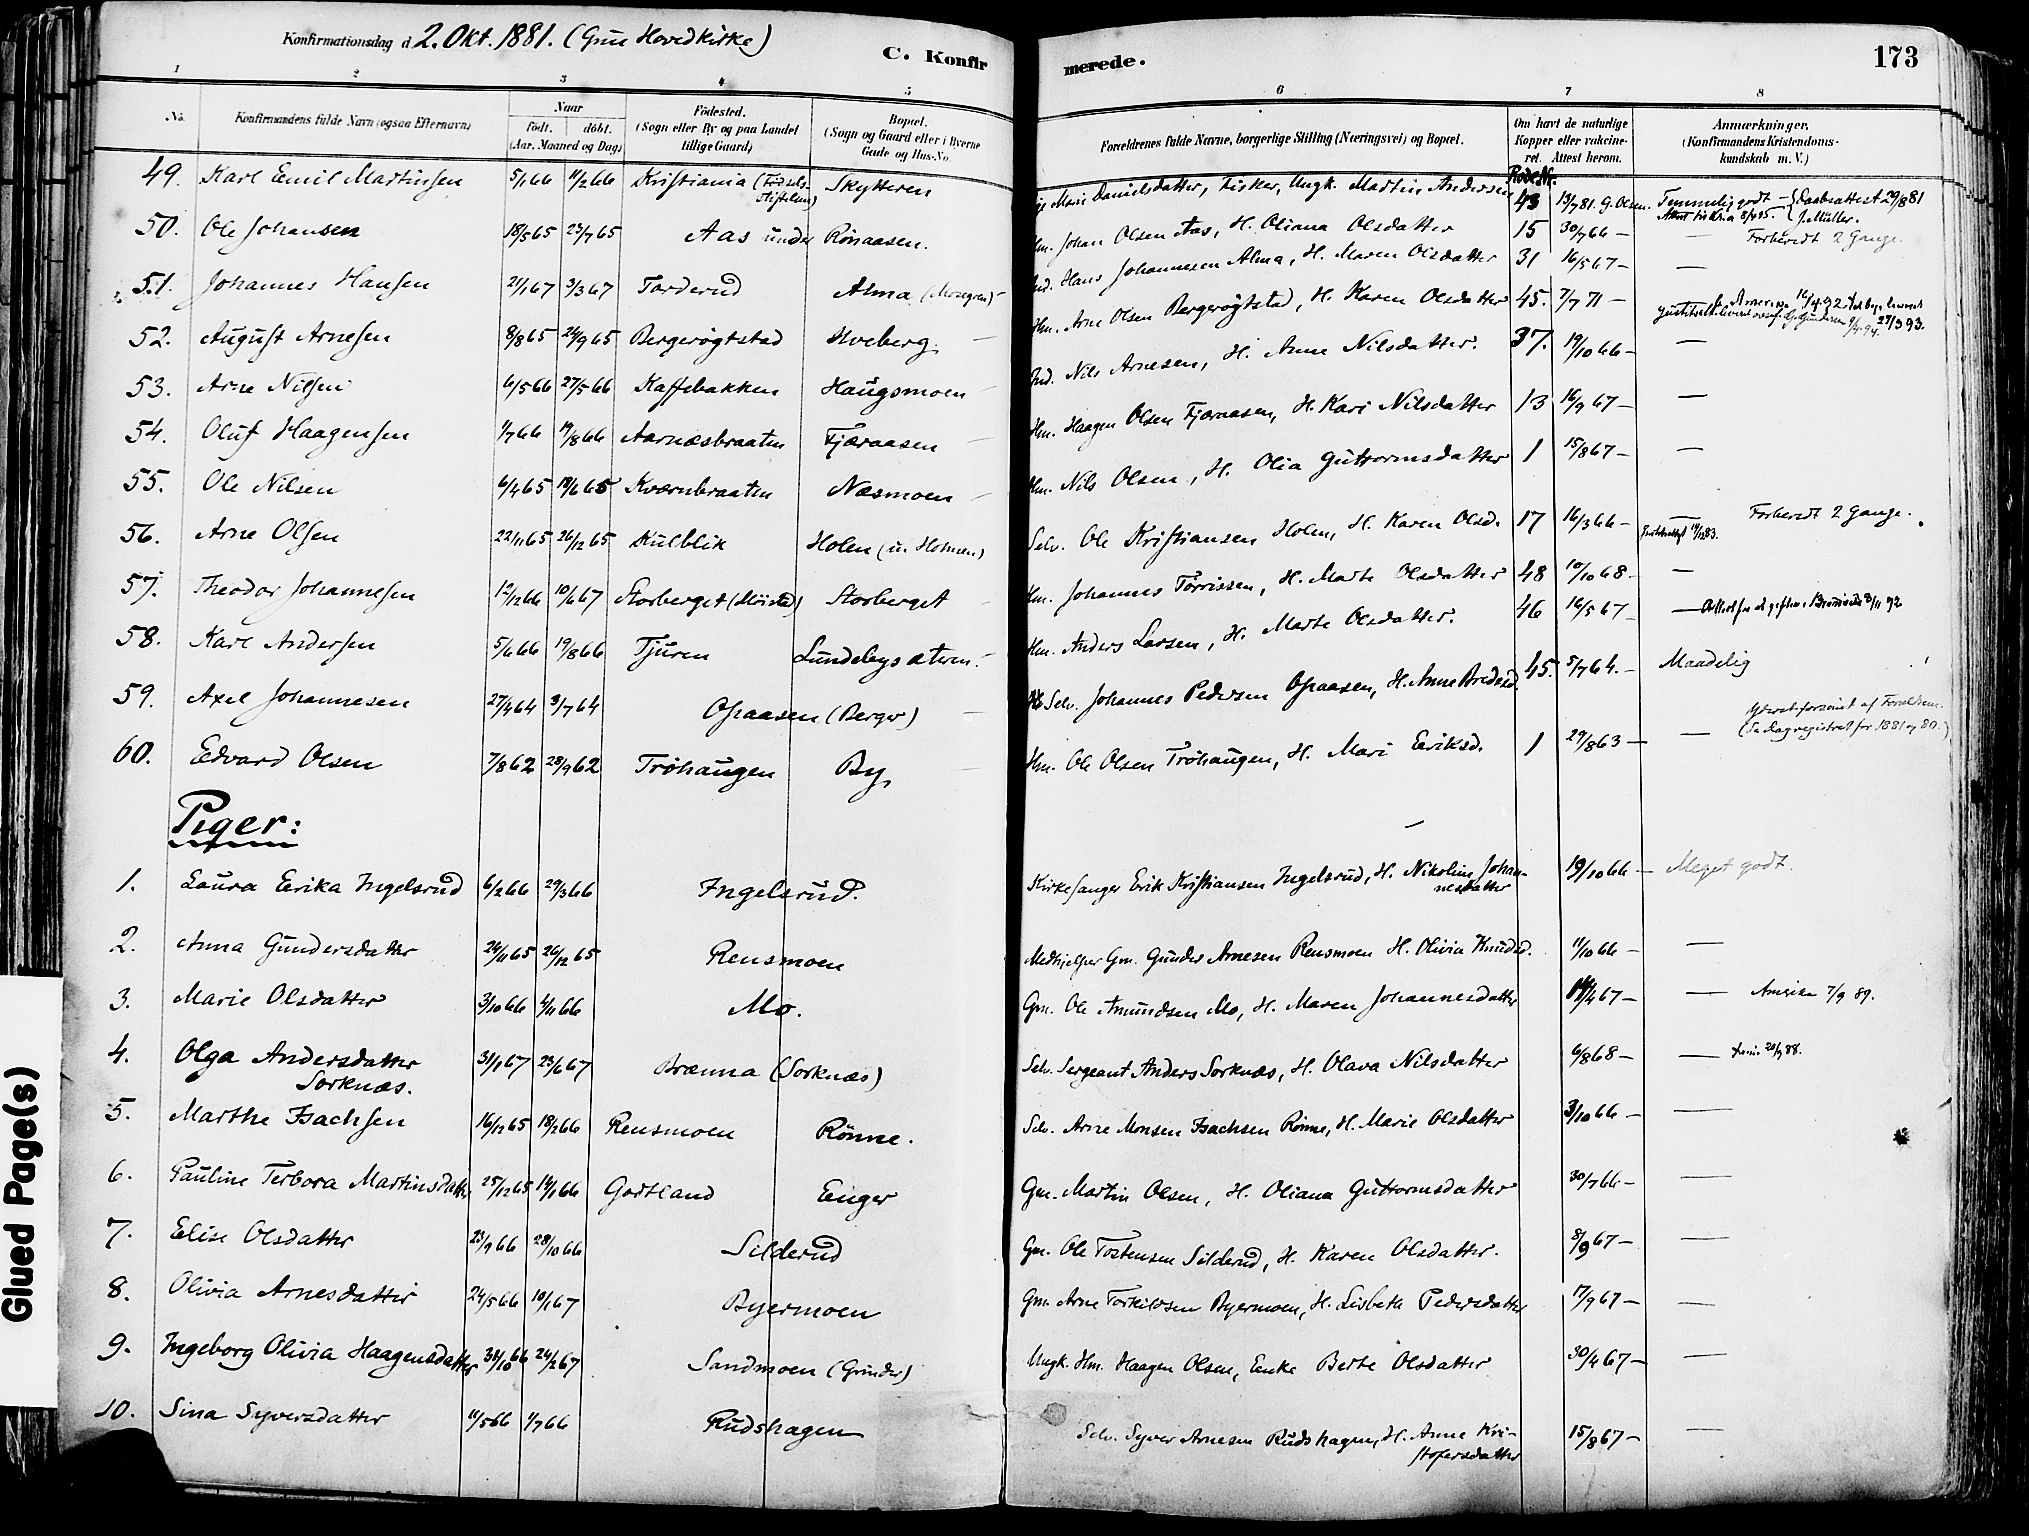 Konfirmationsdag d. 2. Okt. 1881. (Grue Hovedkirke)
C. Konfir
merede.
173
1 2 3 4 5 6 7 8
No. Konfirmandens fulde Navn (ogsaa Efternavn) Naar født. døbt. (Aar, Maaned og Dag) Fødested. (Sogn eller By og paa Landet tillige Gaard) Bopæl. (Sogn og Gaard eller i Byerne Gade og Hus-No. Forældrenes fulde Navne, borgerlige Stilling (Næringsvei) og Bopæl. Om havt de naturlige Kopper eller vakcineret. Attest herom. Anmærkninger. (Konfirmandens Kristendomskundskab m. V.)
Rode Nr.
49. Karl Emil Martinsen 5/1 66 11/2 66 Kristiania (Fødselsstiftelsen) Skytteren Marie Danielsdatter, Fisker, Ungk. Martin Andersen 43 13/7 81. G. Olsen. Temmelig godt – Daabsattest 29/8 81 J. Müller.
50. Ole Johansen 18/5 65 23/7 65 Aas under Rönaasen. Hm. Johan Olsen Aas, H. Oliana Olsdatter 15 30/7 66 – — Forberedt 2 Gange.
51. Johannes Hansen 21/1 67 3/3 67 Torderud Alma (Mosegren) Ind. Hans Johannesen Alma, H. Maren Olsdatter 31 16/5 67 – —
52. August Arnesen 8/8 65 24/9 65 Bergerögtstad Hveberg Hm. Arne Olsen Bergerögtstad, H. Karen Olsdatter 45. 7/7 71 –
53. Arne Nilsen 6/5 66 27/5 66 Kaffebakken Haugsmoen Ind. Nils Arnesen, H. Anne Nilsdatter. 37. 19/10 66 – —
54. Oluf Haagensen 1/7 66 19/8 66 Aarnæsbraaten Fjæraasen Hm. Haagen Olsen Fjæraasen, H. Kari Nilsdatter 13 16/9 67 – —
55. Ole Nilsen 6/4 65 18/6 65 Kværnbraaten Næsmoen Hm. Nils Olsen, H. Olia Guttormsdatter 1 15/8 67 – —
56. Arne Olsen 22/11 65 26/12 65 Kulblik Holen (u. Holmen) Selv. Ole Kristiansen Holen, H. Karen Olsd. 17 16/3 66 – — Forberedt 2 Gange.
57. Theodor Johannesen 12/12 66 10/6 67 Storberget (Möistad) Storberget Hm. Johannes Törrissen, H. Marte Olsdatter 48 10/10 68 – —
58. Karl Andersen 5/6 66 19/8 66 Tjuren Lundebysæteren Hm. Anders Larsen, H. Marte Olsdatter. 46 16/5 67 – —
59. Axel Johannesen 27/4 64 3/7 64 Opaasen (Berger) Selv. Johannes Pedersen Opaasen, H. Anne Bredesd. 45. 5/7 64. – Maadelig
60. Edvard Olsen 7/8 62 28/9 62 Tröhaugen By Hm. Ole Olsen Tröhaugen, H. Mari Eriksd. 1 29/8 63 – — Yderst forsömt af Forældrene. (Se Dagregistret for 1881 og 80.)
Piger:
1. Laura Erika Ingelsrud 6/2 66 29/3 66 Ingelsrud. Kirkesanger Erik Kristiansen Ingelsrud, H. Nikoline Johannesdatter 19/10 66 – Meget godt.
2. Anna Gundersdatter 24/11 65 26/12 65 Rensmoen Medhjelper Gm. Gunder Arnesen Rensmoen H. Olivia Knudsd. 11/10 66 – —
3. Marie Olsdatter 3/10 66 4/11 66 Mo. Gm. Ole Amundsen Mo, H. Maren Johannesdatter 14/4 67 – — Amerika 7/9 89.
4. Olga Andersdatter Sorknæs. 31/1 67 23/6 67 Brænna (Sorknæs) Selv. Sergeant Anders Sorknæs, H. Olava Nilsdatter 6/8 68 – —
5. Marthe Isachsen 16/12 65 18/2 66 Rensmoen Rönne. Selv. Arne Monsen Isachsen Rönne, H. Marie Olsdatter 3/10 66 – —
6. Pauline Terbora Martinsdatter 25/12 65 14/1 66 Godtland Enger Gm. Martin Olsen, H. Oliana Guttormsdatter 30/7 66 – —
7. Elise Olsdatter 23/9 66 28/10 66 Silderud Gm. Ole Tostensen Silderud, H. Karen Olsdatter. 8/9 67 – —
8. Olivia Arnesdatter 24/5 66 10/1 67 Byermoen Gm. Arne Torkildsen Byermoen, H. Lisbeth Pedersdatter 17/9 67 – —
9. Ingeborg Olivia Haagensdatter 31/10 66 24/2 67 Sandmoen (Grinder) Ungk. Hm. Haagen Olsen, Enke Berte Olsdatter 30/4 67 – —
10. Sina Syversdatter 11/5 66 1/7 66 Rudshagen Selv. Syver Arnesen Rudshagen, H. Anne Kristofersdatter 15/8 67 – —
Glued Page(s)